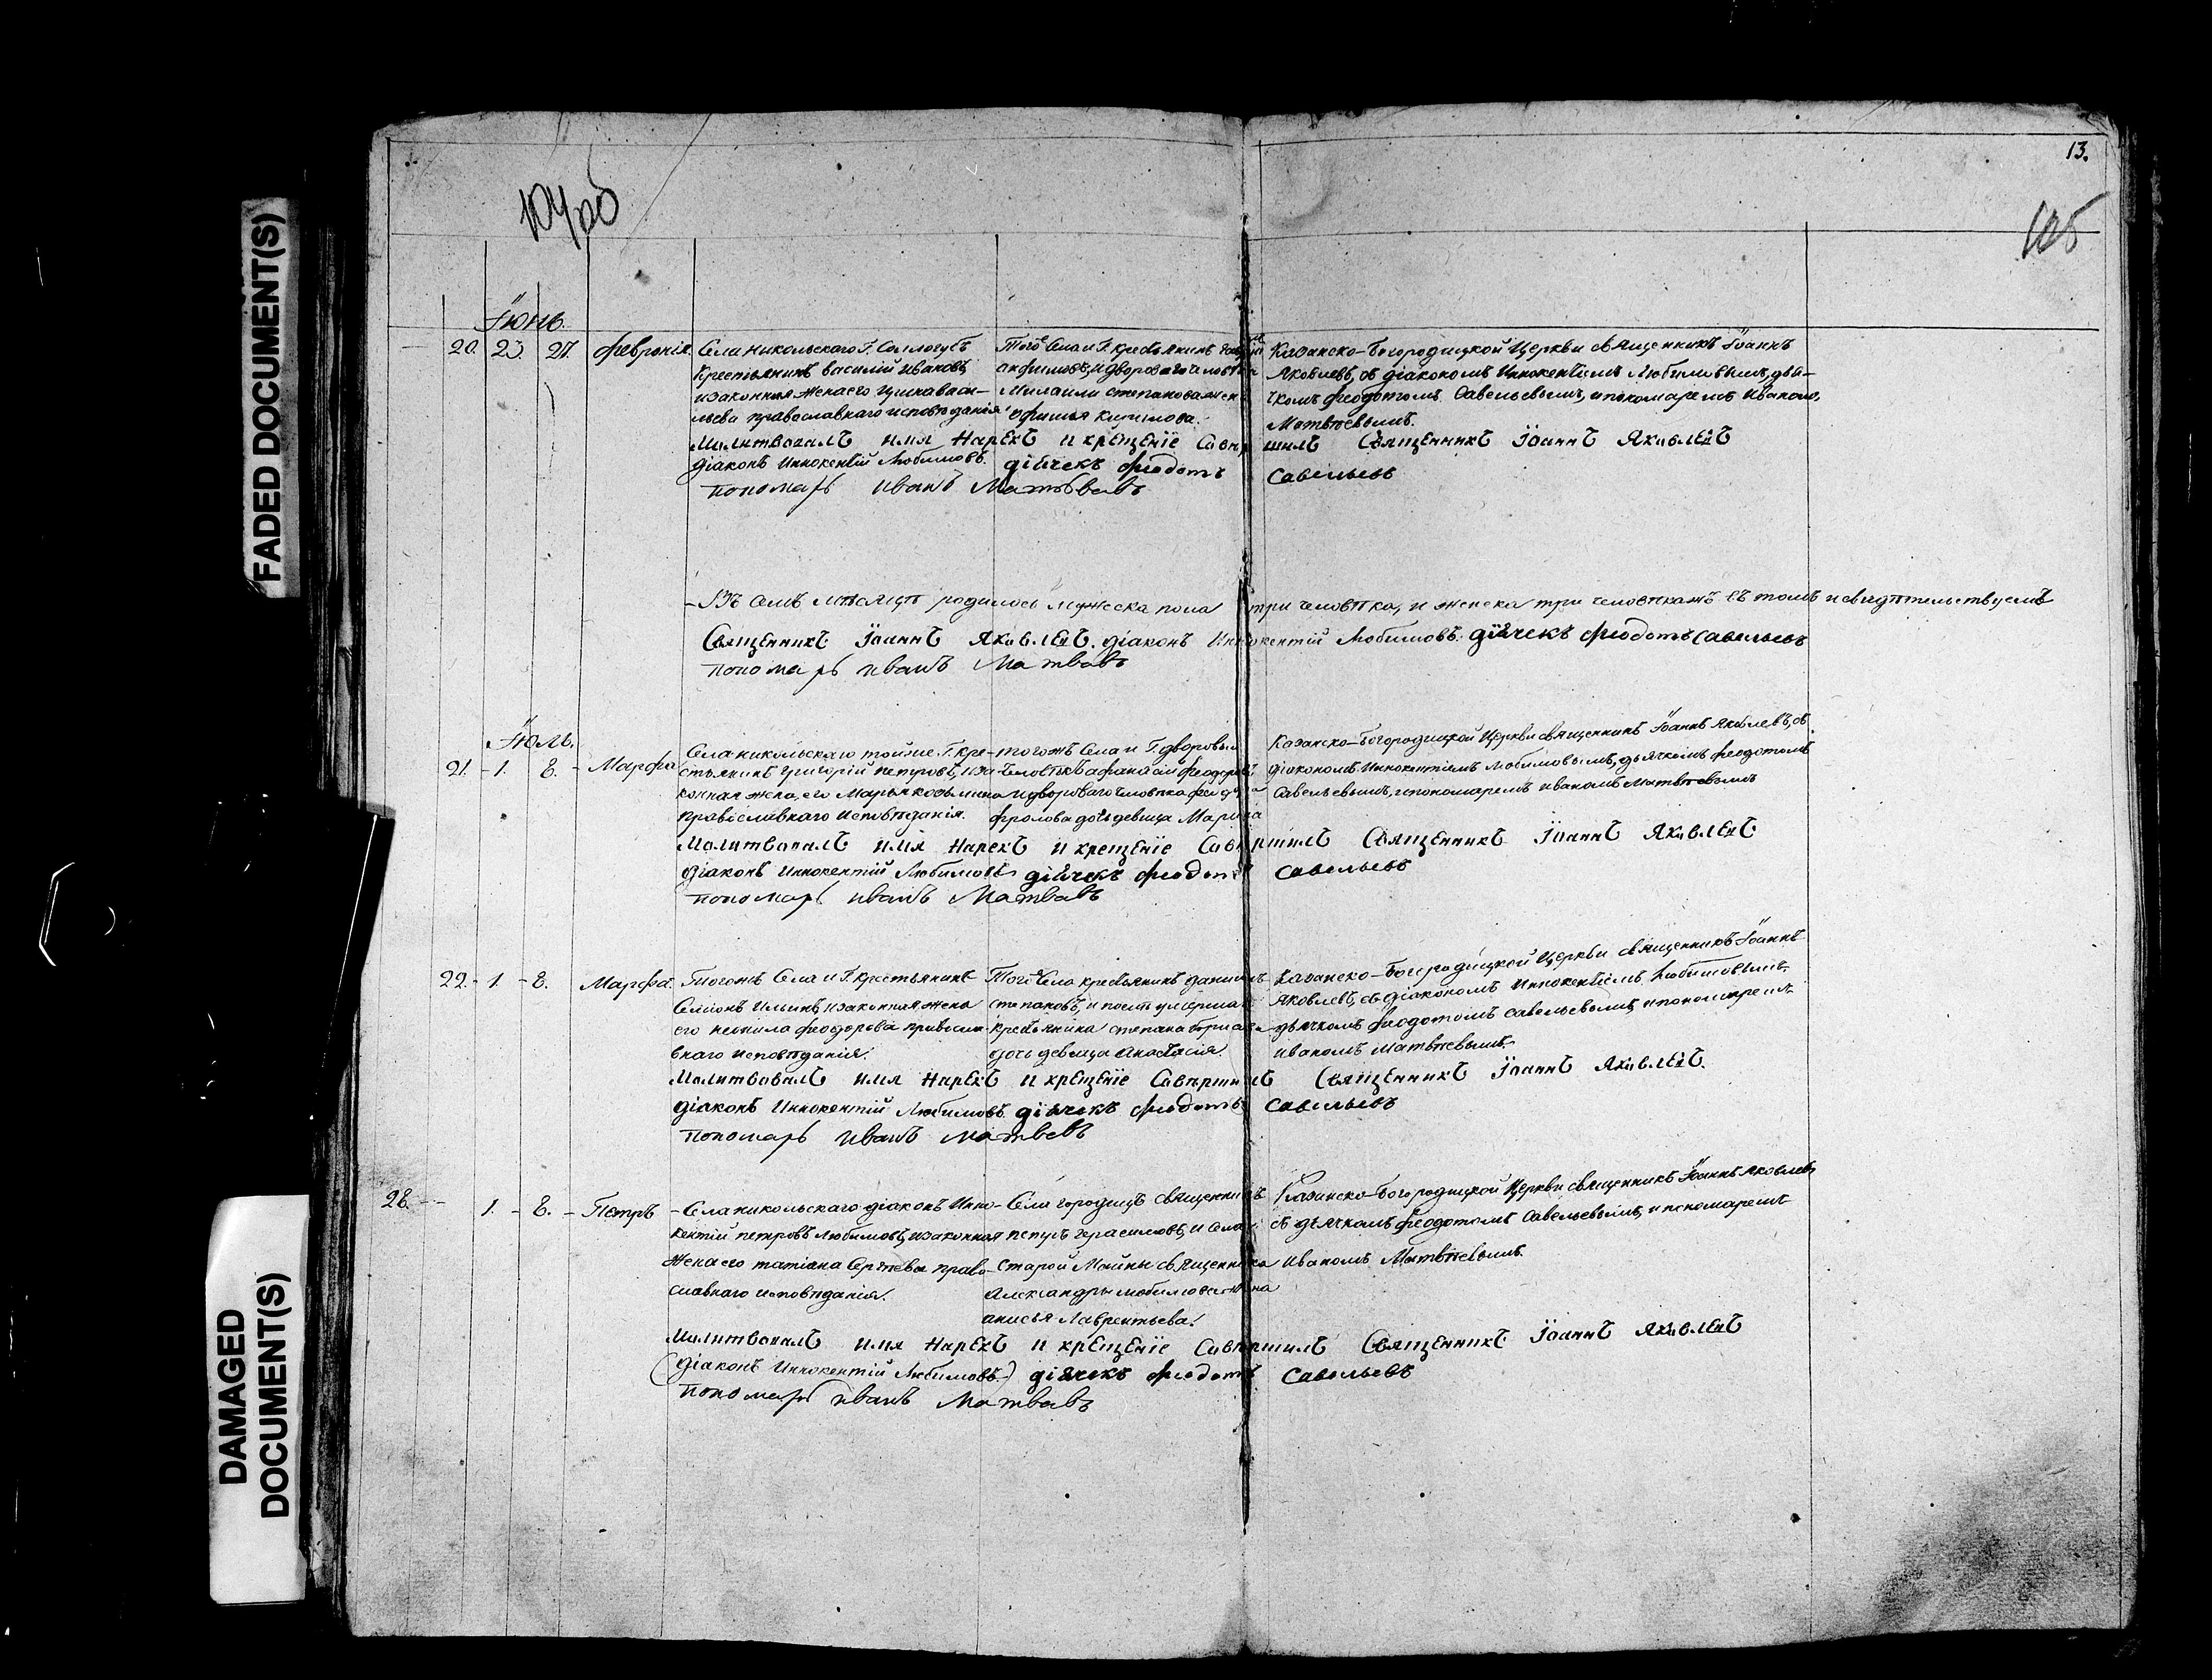 FADED DOCUMENT(S)
DAMAGED
DOCUMENT(S)
104об
13.
105
Іюнь.
20. 23. 27. Февронія.
Села Никольскаго Г. Соллогубъ
крестьянинъ Василій Ивановъ,
изаконная жена его Ирина Васи-
льева православнаго исповѣданія
Тогоже Села и Г. крестьянинъ
Анфимовъ, и двороваго человѣка
Михаила Степанова жена
Офимья Кирилова.
Казанско-Богородицкой Церкви священникъ Іоаннъ
Яковлевъ, съ діакономъ Иннокентіемъ Любимовымъ, дья-
чкомъ Феодотомъ Савельевымъ, и пономаремъ Иваномъ
Матвѣевымъ.
Молитвовалъ имя Нарекъ и крещеніе Совершилъ Священникъ Іоаннъ Яковлевъ
діаконъ Иннокентій Любимовъ. дьячекъ Феодотъ Савельевъ
пономарь Иванъ Матвѣвъ
- Въ семъ мѣсяцѣ родилось мужеска пола три человѣка, и женска три человѣкажъ въ томъ и свидѣтельствуемъ
Священникъ Іоаннъ Яковлевъ. діаконъ Иннокентій Любимовъ. дьячекъ Феодотъ Савельевъ
пономарь Иванъ Матвавъ
Іюль.
21. - 1. 8. - Марфа
Села Никольскаго тойже Г. кре-
стьянинъ Григорій Петровъ, иза-
конная жена, его Марья Козьмина
православнаго исповѣданія.
тогожъ Села и Г. дворовый
человѣкъ Афанасій Феодоровъ
и двороваго человѣка
Фролова дочь девица Марина
Казанско-Богородицкой Церкви священникъ Іоаннъ Яковлевъ, съ
діакономъ Иннокентіемъ Любимовымъ, дьячкомъ Феодотомъ
Савельевымъ, и пономаремъ Иваномъ Матвѣевымъ
Молитвовалъ имя Нарекъ и крещеніе Совершилъ Священникъ Іоаннъ Яковлевъ
діаконъ Иннокентій Любимовъ дьячекъ Феодотъ Савельевъ
пономарь Иванъ Матвавъ
22. - 1. - 8. Марфа.
Тогожъ Села и Г. крестьянинъ
Семіонъ Ильинъ, изаконная жена
его Неонила Феодорова правосла-
внаго исповѣданія.
Тогоже Села крестьянинъ Даніилъ
Степановъ, и
крестьянина Степана Борисова
дочь девица Анастасія.
Казанско-Богородицкой Церкви священникъ Іоаннъ
Яковлевъ, съ діакономъ Иннокентіемъ Любимовымъ,
дьячкомъ Феодотомъ Савельевымъ, и пономаремъ
Иваномъ Матвѣевымъ.
Молитвовалъ имя Нарекъ и крещеніе Совершилъ Священникъ Іоаннъ Яковлевъ.
діаконъ Иннокентій Любимовъ. дьячекъ Феодотъ Савельевъ
пономарь Иванъ Матвевъ
28. - 1. - 8. - Петръ
- Села Никольскаго діаконъ Инно-
кентій Петровъ Любимовъ, изаконная
жена его Татіана Сергѣева право-
славнаго исповѣданія.
Села Городищъ священникъ
Петръ Герасимовъ, и Села
Старой Майны священника
Александры Любимова жена
Анисья Лаврентьева.
Казанско-Богородицкой Церкви священникъ Іоаннъ Яковлевъ
съ дьячкомъ Феодотомъ Савельевымъ, и пономаремъ
Иваномъ Матвѣевымъ.
Молитвовалъ имя Нарекъ и крещеніе Совершилъ Священникъ Іоаннъ Яковлевъ
(діаконъ Иннокентій Любимовъ.) дьячекъ Феодотъ Савельевъ
пономарь Иванъ Матвавъ